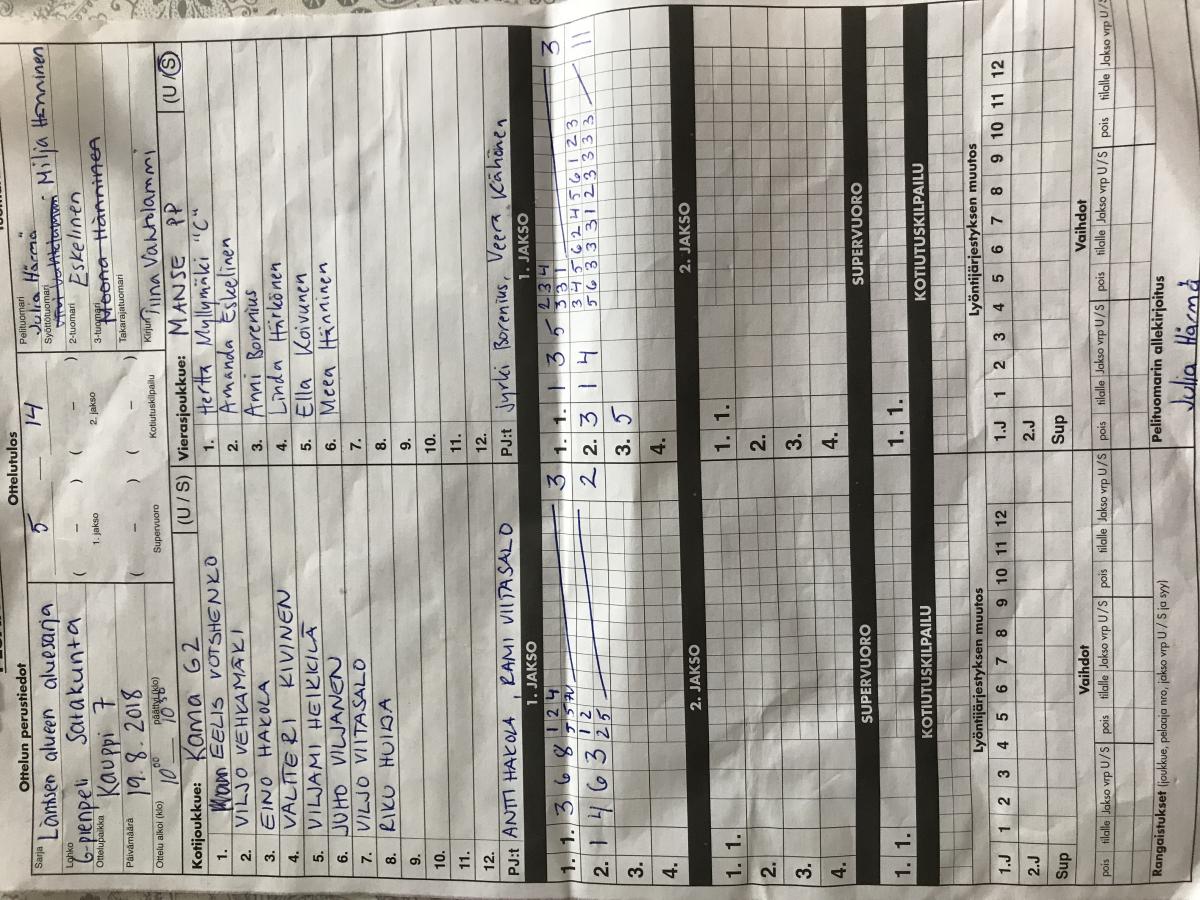 Ottelun perustiedot
Sarja Läntisen alueen aluesarja
Lohko 6-pienpeli Satakunta
Ottelupaikka Kauppi 7
Päivämäärä 19.8.2018
Ottelu alkoi (klo) 10 00 päättyi (klo) 10 50
Ottelutulos
5 — 14
( – ) ( – )
1. jakso 2. jakso
( – ) ( – )
Supervuoro Kotiutuskilpailu
Pelituomari Julia Härmä
Syöttötuomari Milja Hänninen
2-tuomari Eskelinen
3-tuomari Meena Hänninen
Takarajatuomari
Kirjuri Tiina Vahtolammi
Kotijoukkue: Koma G2 (U / S)
1. EELIS VOTSHENKO
2. VILJO VEHKAMÄKI
3. EINO HAKOLA
4. VALTTERI KIVINEN
5. VILJAMI HEIKKILÄ
6. JUHO VILJANEN
7. VILJO VIITASALO
8. RIKU HUIDA
9.
10.
11.
12.
PJ:t ANTTI HAKOLA, RAMI VIITASALO
Vierasjoukkue: MANSE PP (U / S)
1. Hertta Myllymäki "C"
2. Amanda Eskelinen
3. Anni Borenius
4. Linda Härkönen
5. Ella Koivunen
6. Meea Hänninen
7.
8.
9.
10.
11.
12.
PJ:t Jyrki Borenius, Veera Kähönen
1. JAKSO 1. JAKSO
1. 1. 3 6 8 1 2 4 3
2. 1 4 6 3 1 2 2
2 5
3.
4.
1. 1. 1 3 5 2 3 4 3
3 3 1
2. 3 1 4 3 4 5 6 2 4 5 6 1 2 3 11
5 6 3 3 3 1 2 3 3 3 3
3. 5
4.
2. JAKSO 2. JAKSO
1. 1. 1. 1.
2. 2.
3. 3.
4. 4.
SUPERVUORO SUPERVUORO
1. 1. 1. 1.
KOTIUTUSKILPAILU KOTIUTUSKILPAILU
Lyöntijärjestyksen muutos Lyöntijärjestyksen muutos
1.J 1 2 3 4 5 6 7 8 9 10 11 12 1.J 1 2 3 4 5 6 7 8 9 10 11 12
2.J 2.J
Sup Sup
Vaihdot Vaihdot
pois tilalle Jakso vrp U / S pois tilalle Jakso vrp U / S pois tilalle Jakso vrp U / S pois tilalle Jakso vrp U / S pois tilalle Jakso vrp U / S pois tilalle Jakso vrp U / S
Rangaistukset (joukkue, pelaaja nro, jakso vrp U / S ja syy)
Pelituomarin allekirjoitus
Julia Härmä